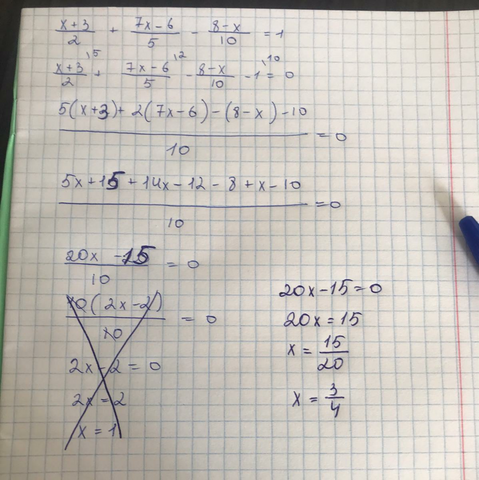 (x+3)/2 + (7x-6)/5 - (8-x)/10 = 1
(x+3)/2 ,5 + (7x-6)/5 ,2 - (8-x)/10 - 1 ,10 = 0
(5(x+3)+2(7x-6)-(8-x)-10)/10 = 0
(5x+15+14x-12-8+x-10)/10 = 0
(20x-15)/10 = 0
10(2x-2)/10 = 0
2x-2=0
2x=2
x=1
20x-15=0
20x=15
x=15/20
x=3/4